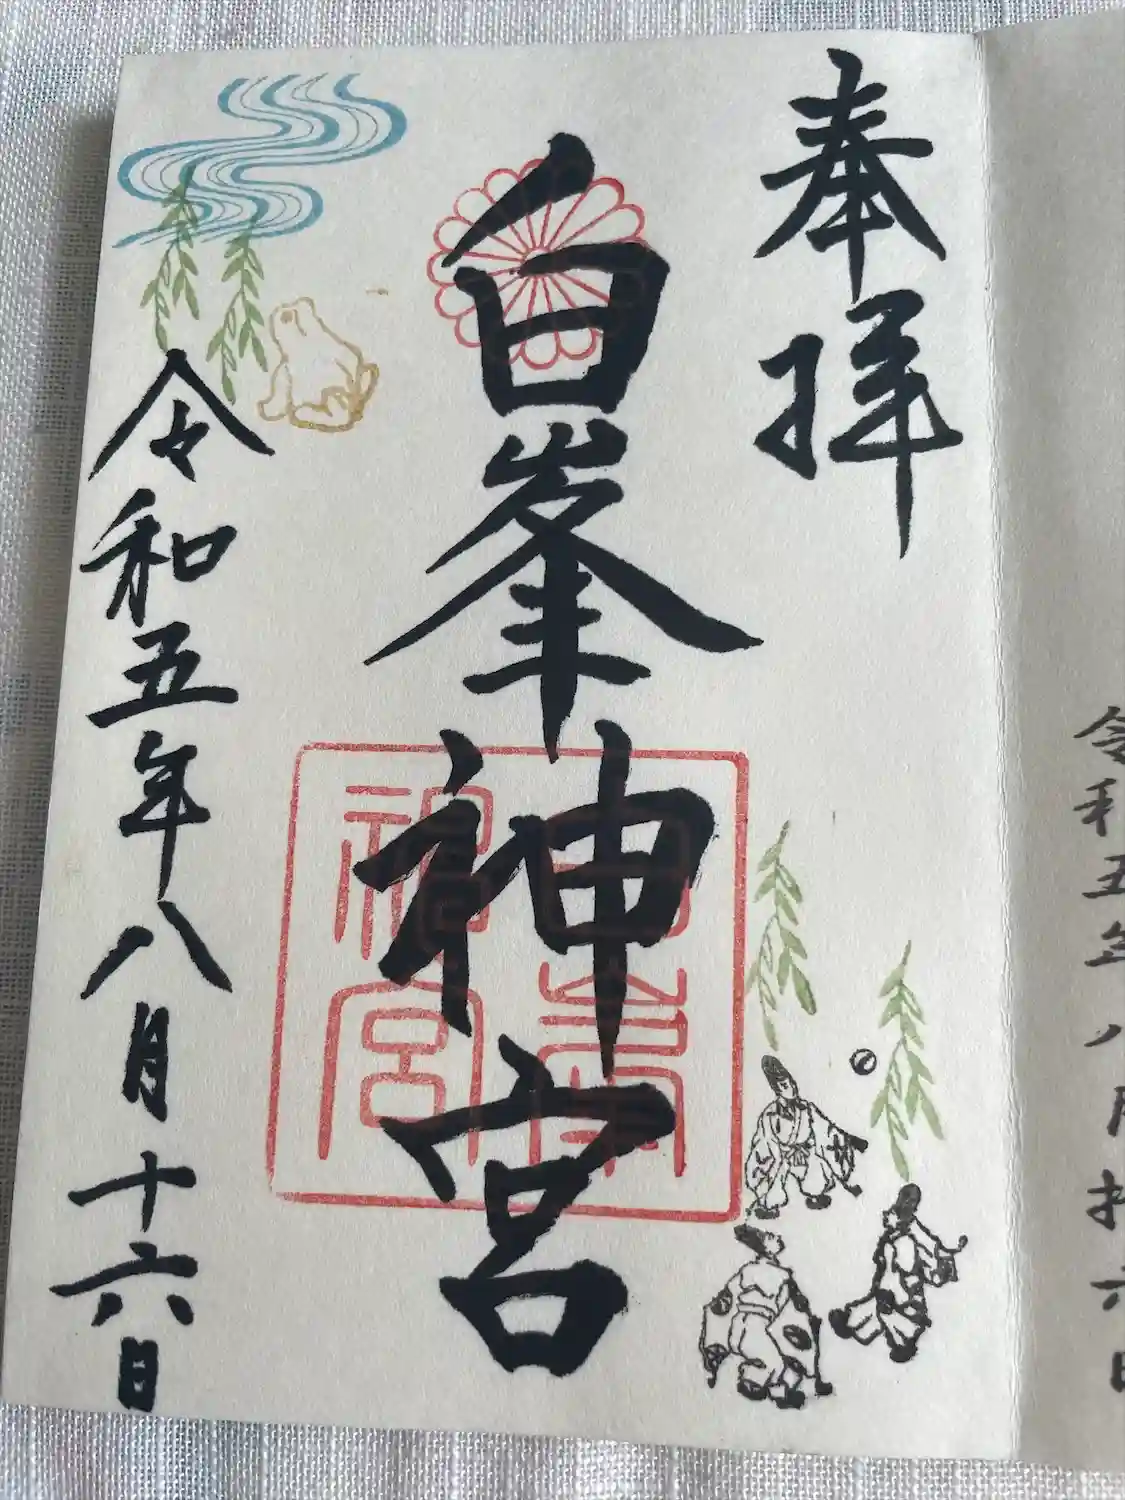 令和五年八月十六日
奉拝
白峯神宮
白峯神宮
令和五年八月十六日